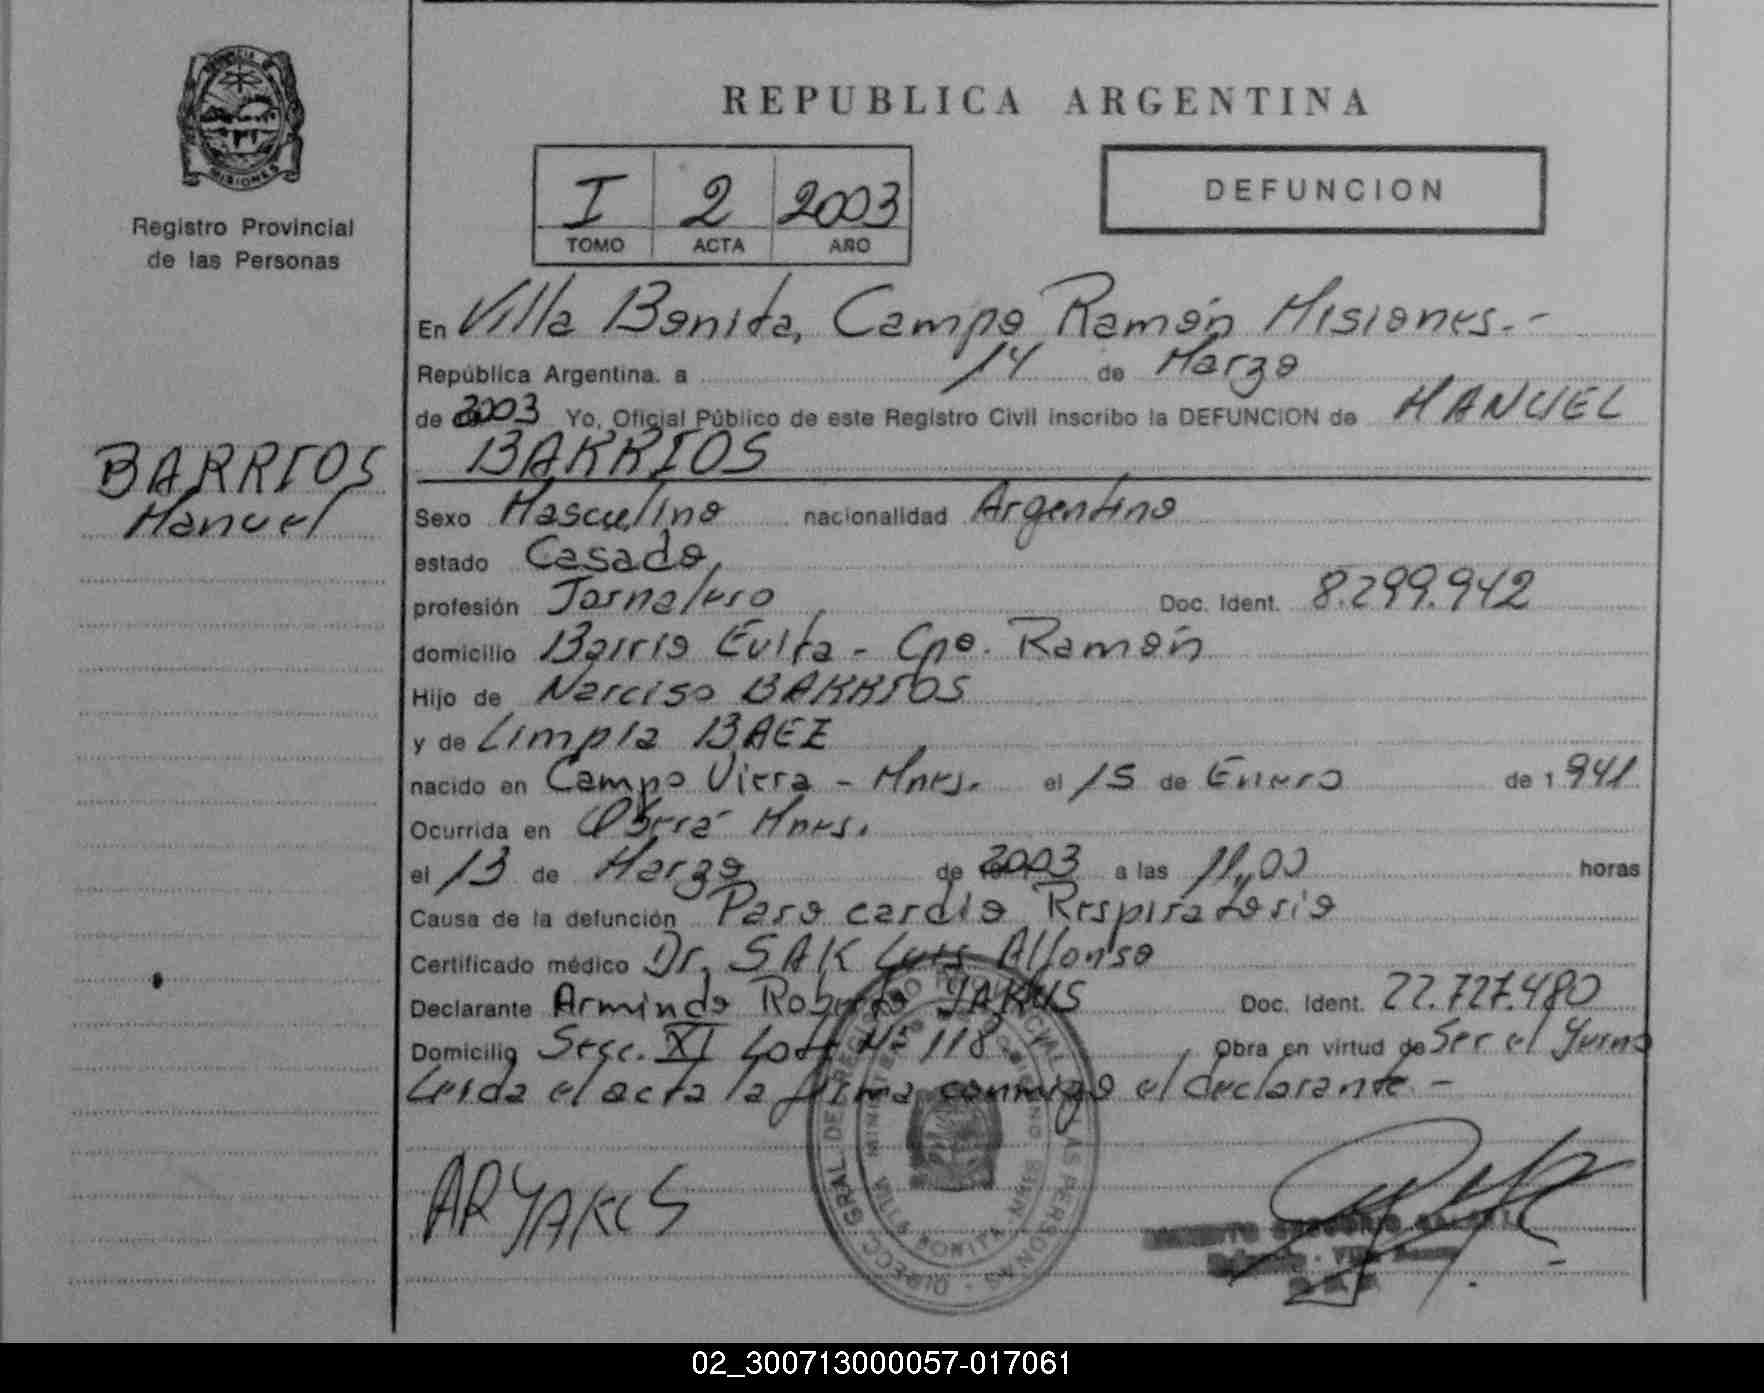 PROVINCIA DE
MISIONES
Registro Provincial
de las Personas
BARRIOS
Manuel
REPUBLICA ARGENTINA
I 2 2003
TOMO ACTA AÑO
DEFUNCION
En Villa Bonita, Campo Ramón Misiones.-
República Argentina. a 14 de Marzo
de 2003 Yo, Oficial Público de este Registro Civil inscribo la DEFUNCION de MANUEL
BARRIOS
Sexo Masculino nacionalidad Argentino
estado Casado,
profesión Jornalero Doc. Ident. 8.299.942
domicilio Barrio Evita - Cpo. Ramón
Hijo de Narciso BARRIOS
y de Limpia BAEZ
nacido en Campo Viera - Mnes. el 15 de Enero de 1 941
Ocurrida en Oberá Mnes.
el 13 de Marzo de 2003 a las 11,00 horas
Causa de la defunción Paro cardio Respiratorio
Certificado médico Dr. SAK Luis Alfonso
Declarante Armindo Roberto YAKUS Doc. Ident. 22.727.480
Domicilio Secc. XI Lote Nº 118 Obra en virtud de Ser el Yerno
Leida el acta la firma conmigo el declarante -
ARYAKUS
DIRECC. GRAL. DE REGISTRO PROVINCIAL DE LAS PERSONAS
MINISTERIO DE GOBIERNO
VILLA BONITA - MNES
02_300713000057-017061